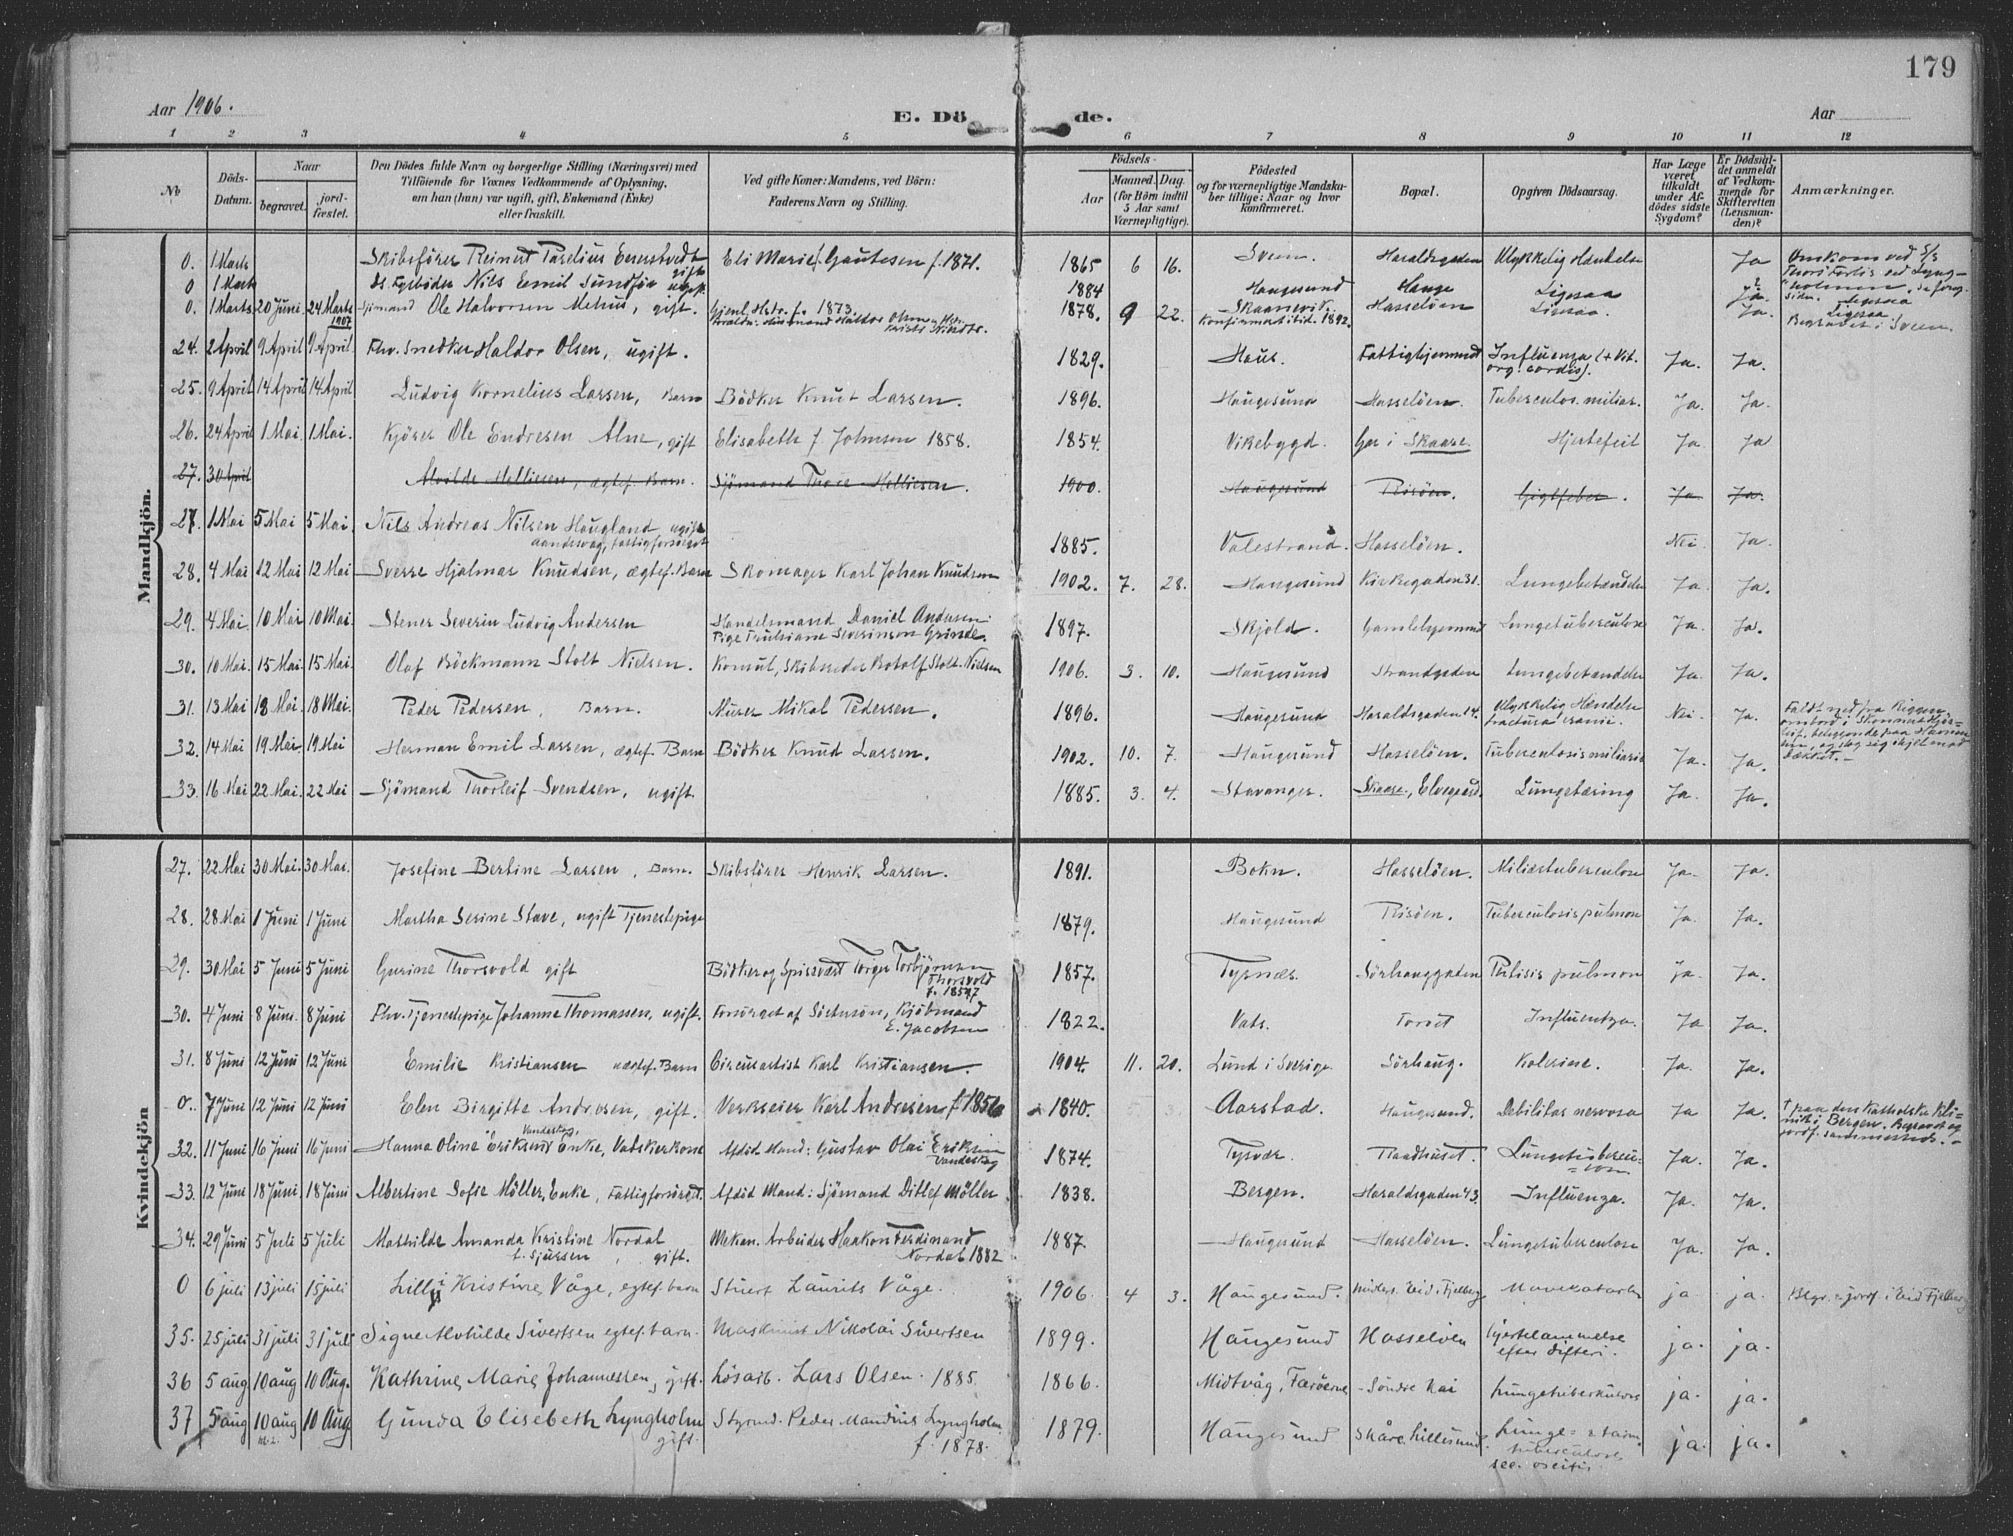 179
Aar 1906.
E. Dö de.
Aar
1 2 3 4 5 6 7 8 9 10 11 12
No
Döds-Datum.
Naar
begravet.
jordfæstet.
Den Dödes fulde Navn og borgerlige Stilling (Næringsvei) med
Tilföiende for Voxnes Vedkommende af Oplysning,
om han (hun) var ugift, gift, Enkemand (Enke)
eller fraskilt.
Ved gifte Koner: Mandens, ved Börn:
Faderens Navn og Stilling.
Födsels-
Aar
Maaned. Dag.
(for Börn indtil
5 Aar samt
Værnepligtige).
Födested
og for værnepligtige Mandskaber tillige: Naar og hvor
konfirmeret.
Bopæl.
Opgiven Dödsaarsag.
Har Læge været tilkaldt under Afdödes sidste Sygdom?
Er Dödsfaldet anmeldt af Vedkommende for Skifteretten (Lensmanden)?
Anmærkninger.
Mandkjön.
0. 1 Marts Skibsförer Reinert Eli Marie f. Gautesen f. 1871. 1865 6 16. Sveen. Haraldsgaden Ulykkelig Hændelse Ja Omkom ved S/S
0 1 Marts Nils Emil 1884 Haugesund Hauge Ligesaa Ja
0. 1 Marts 20 Juni 24 Marts 1907 Sjömand Ole Halvorsen Mehus, gift. 1873. 1878. 9 22. Skaanevik. Konfirmert 1892. Hasselöen Ligesaa. Ja. Ligesaa Begravet i Sveen.
24. 2 April 9 April 9 April. Fhv. Snedker Haldor Olsen, ugift. 1829. Haus. Fattighjemmet Influenza (+ Vit. org. cordis). Ja. Ja.
25. 9 April 14 April 14 April Ludvig Kornelius Larsen, Barn Bödker Knut Larsen. 1896. Haugesund Hasselöen. Tuberculos. miliar. Ja. Ja.
26. 24 April 1 Mai. 1 Mai. Kjörer Ole Endresen Alne, gift Elisabeth f. Johnsen 1858. 1854. Vikebygd. Ger i Skaare. Hjertefeil Ja. Ja
27. 30 April Alvilde Melliesen, ægtef. Barn. Sjömand Thore Melliesen. 1900. Haugesund Risöen. Gigtfeber. Ja Ja.
27. 1 Mai 5 Mai 5 Mai. Nils Andreas Nilsen Haugland ugift aandssvag, fattigforsörget 1885. Valestrand. Hasselöen. Nei. Ja.
28. 4 Mai 12 Mai 12 Mai Sverre Hjalmar Knudsen, ægtef. Barn Skomager Karl Johan Knudsen 1902. 7. 28. Haugesund Kirkegaden 31. Lungebetændelse Ja. Ja.
29. 4 Mai. 10 Mai 10 Mai. Stener Severin Ludvig Andersen Handelsmand Daniel Andersen. Pige Severinsen Grinde. 1897. Skjold. Gamlehjemmet Lungetuberculose Ja. Ja.
30. 10 Mai. 15 Mai. 15 Mai. Olaf Böckmann Stolt Nielsen. Konsul, Skibsreder Botolf Stolt-Nielsen 1906. 3. 10. Haugesund Strandgaden Lungebetændelse Ja. Ja.
31. 13 Mai 18 Mai. 18 Mai. Peder Pedersen, Barn. Murer Mikal Pedersen. 1896. Haugesund Haraldsgaden 14. Ulykkelig Hændelse fractura cranii. Nei. Ja. Faldt ned fra Riggen
32. 14 Mai 19 Mai. 19 Mai Herman Emil Larsen, ægtef. Barn Bödker Knud Larsen. 1902. 10. 7. Haugesund Hasselöen. Tuberculosis miliaris Ja. Ja.
33. 16 Mai 22 Mai. 22 Mai Sjömand Thorleif Svendsen, ugift. 1885. 3. 4. Stavanger. Skaare, Elvegaard. Lungetæring Ja. Ja.
Kvindekjön
27. 22 Mai 30 Mai. 30 Mai. Josefine Bertine Larsen, Barn. Skibsförer Henrik Larsen. 1891. Bokn. Hasselöen. Miliærtuberculose Ja. Ja.
28. 28 Mai 1 Juni 1 Juni Martha Serine Stave, ugift Tjenestepige 1879. Haugesund Risöen. Tuberculosis pulmon Ja. Ja.
29. 30 Mai 5 Juni 5 Juni Gurine Thorsvold gift Bödker og Torger Torbjörnsen Thorsvold f. 1857 1857. Tysnæs. Sörhauggaden Phtisis pulmon Ja. Ja.
30. 4 Juni 8 Juni. 8 Juni Fhv. Tjenestepige Johanne Thomassen, ugift. Forsörget af Söstersön, Kjöbmand E. Jacobsen 1822. Vats. Torvet Influentza. Ja Ja.
31. 8 Juni 12 Juni 12 Juni Emilie Kristiansen uægtef. Barn Circusartist Karl Kristiansen. 1904. 11. 20. Lund i Sverige Sörhaug. Kolerine. Ja. Ja.
0. 7 Juni 12 Juni 12 Juni Elen Birgitte Andresen, gift. Verkseier Karl Andresen f. 1840. Aarstad. Haugesund. Debilitas nervosa Ja Ja. † paa den Katholske Klinik i Bergen. Begravet og jordf. sammesteds.
32. 11 Juni 16 Juni 16 Juni Hanna Oline Eriksen Vandeskog, Enke, Vaskerkone Afdöd Mand: Gustav Olai Eriksen Vandeskog 1874. Tysvær. Raadhuset. Lungetuberculose Ja. Ja.
33. 12 Juni 18 Juni 18 Juni Albertine Sofie Möller, Enke, Fattigforsörget. Afdöd Mand: Sjömand Ditlef Möller 1838. Bergen. Haraldsgaden 43. Influenza. Ja. Ja.
34. 29 Juni 5 Juli 5 Juli Mathilde Amanda Kristine Nordal f. Sjursen, gift. Mekan. Arbeider Haakon Ferdinand Nordal 1882 1887. Haugesund Hasselöen. Lungetuberculose Ja. Ja.
0 6 juli 13 juli 15 juli Lilly Kristine Våge, egtef. barn Stuert Laurits Våge. 1906. 4 3. Haugesund. midlers. Eid i Fjelberg Mavekatarh ja. ja. Begr. & jordf. i Eid Fjelberg
35. 25 juli 31 juli 31 juli Signe Alvhilde Sivertsen egtef. barn. Maskinist Nikolai Sivertsen 1899. Haugesund Hasselöen Hjertelammelse efter difteri. ja. ja.
36 5 aug 10 aug 10 Aug. Kathrine Marie Johannessen, gift. Lösarb. Lars Olsen. 1885. 1866. Midtvåg, Færöerne Söndre Kai Lungetuberkulose ja. ja.
37 5 aug 10 aug 10 Aug Gunda Elisebeth Lyngholm gift. Styrmd. Peder Mandius Lyngholm f. 1878. 1879. Haugesund Skåre Lillesund. Lunge- & tarm tuberculose ja. ja.